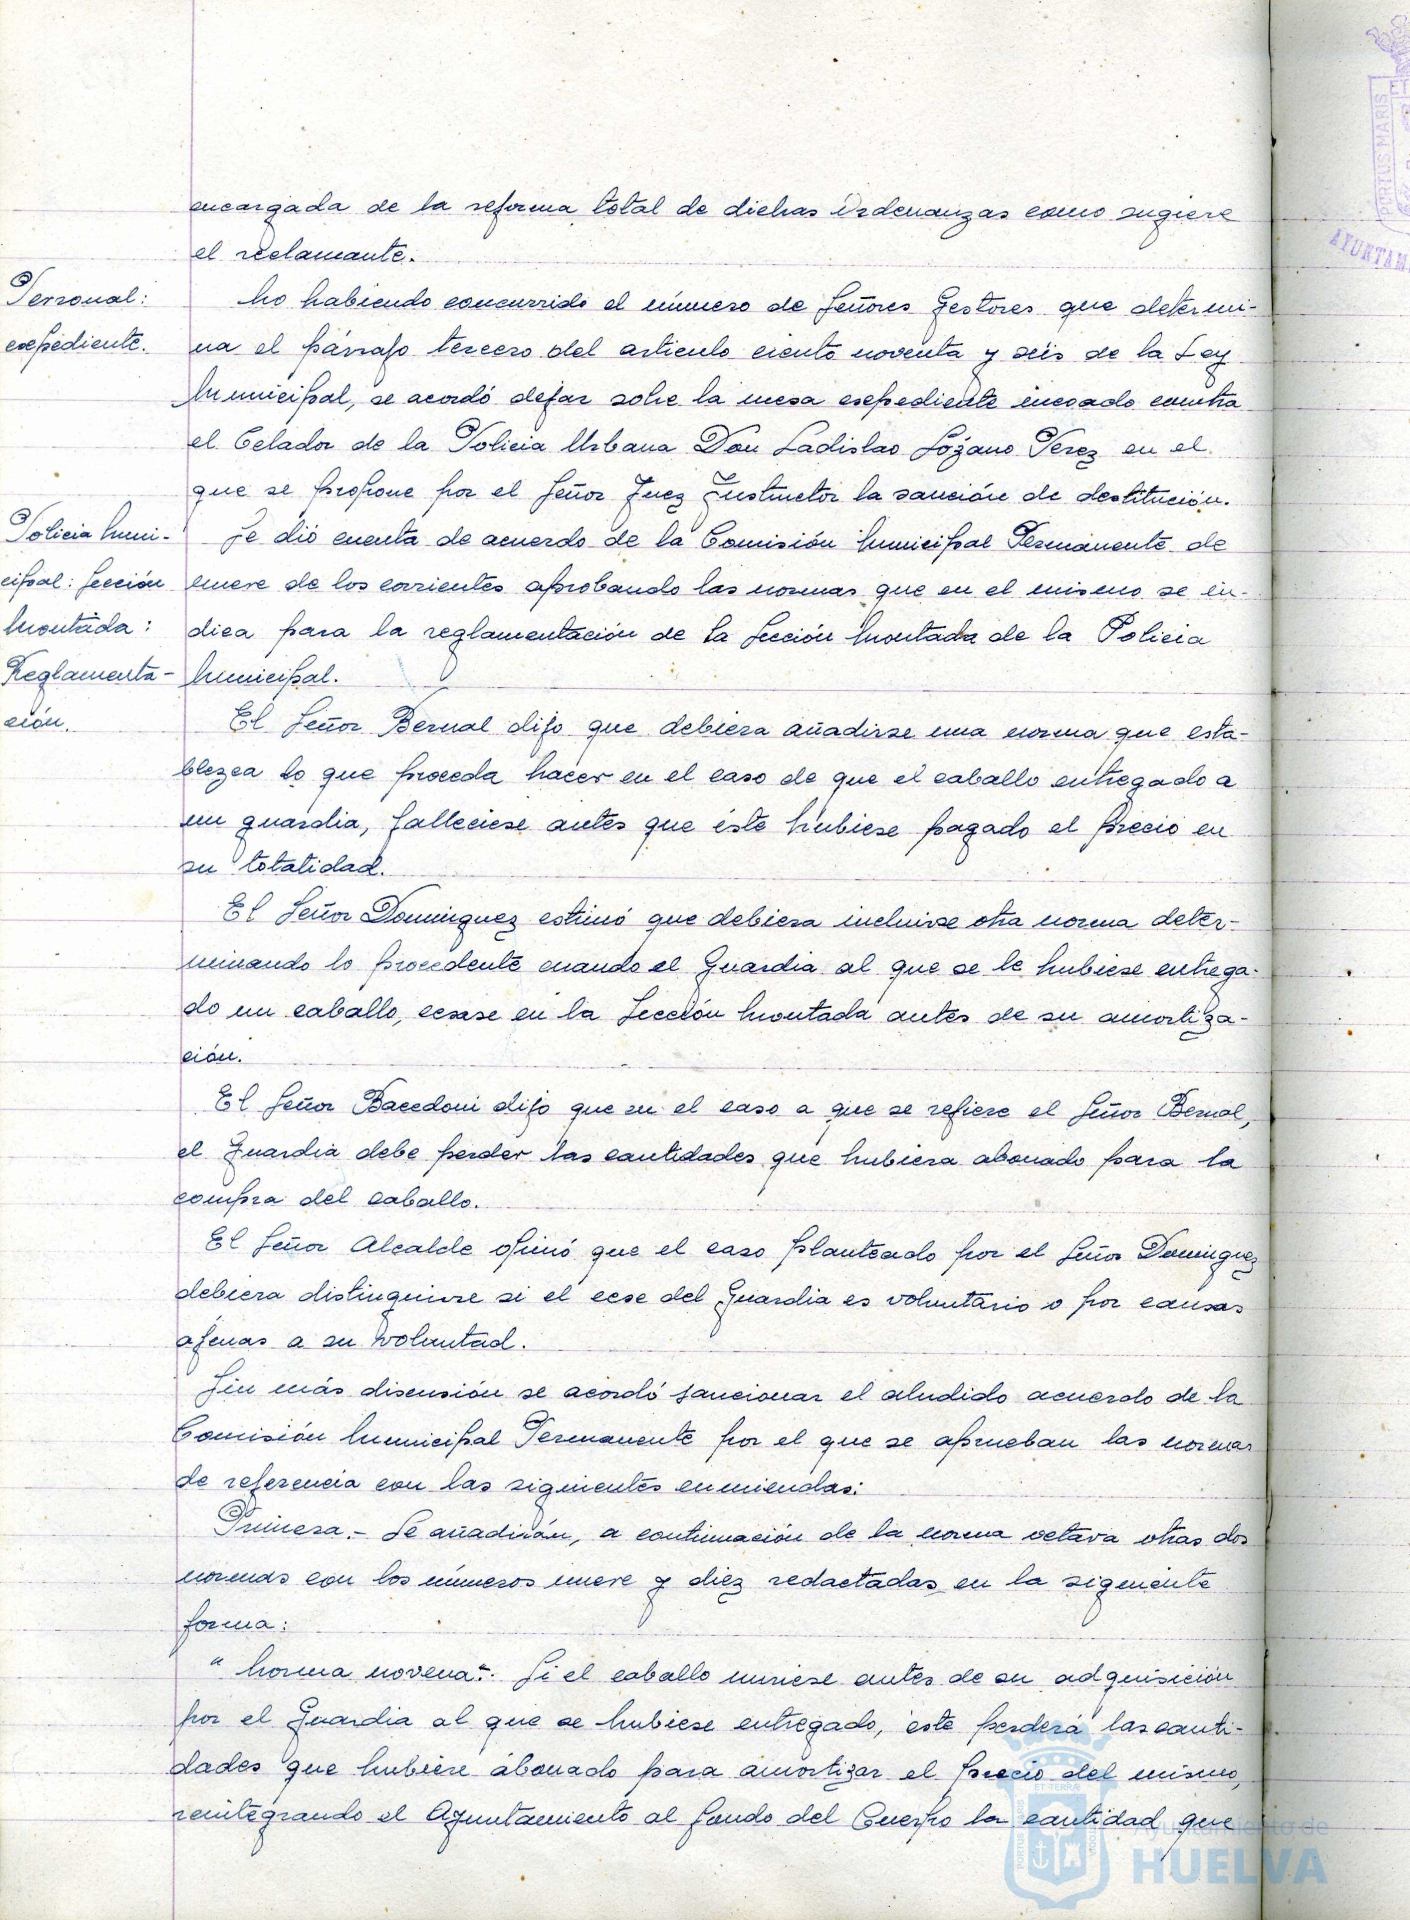 encargada de la reforma total de dichas Ordenanzas como sugiere
el reclamante.
Personal:
expediente.
No habiendo concurrido el número de Señores Gestores que determi-
na el párrafo tercero del artículo ciento noventa y seis de la Ley
Municipal, se acordó dejar sobre la mesa expediente incoado contra
el Celador de la Policia Urbana Don Ladislao Lózano Perez en el
que se propone por el Señor Juez Instructor la sanción de destitución.
Policia Muni-
cipal: Sección
Montada:
Reglamenta-
ción.
Se dió cuenta de acuerdo de la Comisión Municipal Permanente de
nueve de los corrientes aprobando las normas que en el mismo se in-
dica para la reglamentación de la Sección Montada de la Policia
Municipal.
El Señor Bernal dijo que debiera añadirse una norma que esta-
blezca lo que proceda hacer en el caso de que el caballo entregado a
un guardia, falleciese antes que éste hubiese pagado el precio en
su totalidad.
El Señor Dominguez estimó que debiera incluirse otra norma deter-
minando lo procedente cuando el Guardia al que se le hubiese entrega-
do un caballo, cesase en la Sección Montada antes de su amortiza-
ción.
El Señor Bacedoni dijo que en el caso a que se refiere el Señor Bernal,
el Guardia debe perder las cantidades que hubiera abonado para la
compra del caballo.
El Señor Alcalde opinó que el caso planteado por el Señor Dominguez
debiera distinguirse si el cese del Guardia es voluntario o por causas
ajenas a su voluntad.
Sin más discusión se acordó sancionar el aludido acuerdo de la
Comisión Municipal Permanente por el que se aprueban las normas
de referencia con las siguientes enmiendas:
Primera.- Se añadirán, a continuación de la norma octava otras dos
normas con los números nueve y diez redactadas en la siguiente
forma:
"Norma novena".- Si el caballo muriese antes de su adquisición
por el Guardia al que se hubiese entregado, éste perderá las canti-
dades que hubiere abonado para amortizar el precio del mismo,
reintegrando el Ayuntamiento al fondo del Cuerpo la cantidad que
PORTUS MARIS
ET TERRAE
CUSTODIA
Ayuntamiento de
HUELVA
PORTUS MARIS
AYUNTAM